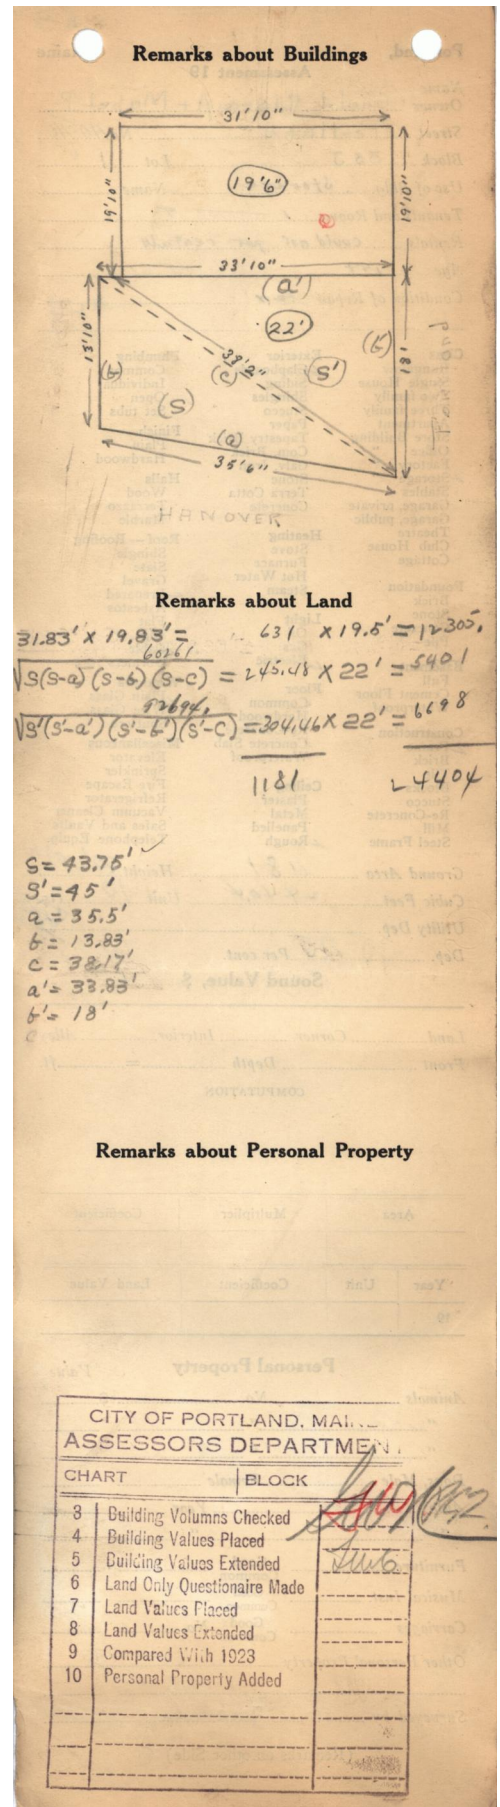 Remarks about Buildings
31'10"
19'10"
19'6"
19'10"
33'10"
(a')
22'
13'10"
(b)
39'2"
(c)
(S')
(b')
18'
(S)
(a)
35'6"
HANOVER
Remarks about Land
31.83' x 19.83' = 631 x 19.5' = 12305.
60261
√S(S-a)(S-b)(S-c) = 245.48 x 22' = 5401
92694.
√S'(S'-a')(S'-b')(S'-c) = 304.46 x 22' = 6698
1181 24404
S = 43.75' ✓
S' = 45'
a = 35.5'
b = 13.83'
c = 38.17'
a' = 33.83'
b' = 18'
Remarks about Personal Property
CITY OF PORTLAND, MAINE
ASSESSORS DEPARTMENT
CHART BLOCK
3 Building Volumns Checked
4 Building Values Placed
5 Building Values Extended
6 Land Only Questionaire Made
7 Land Values Placed
8 Land Values Extended
9 Compared With 1923
10 Personal Property Added